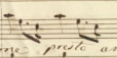 me presto an